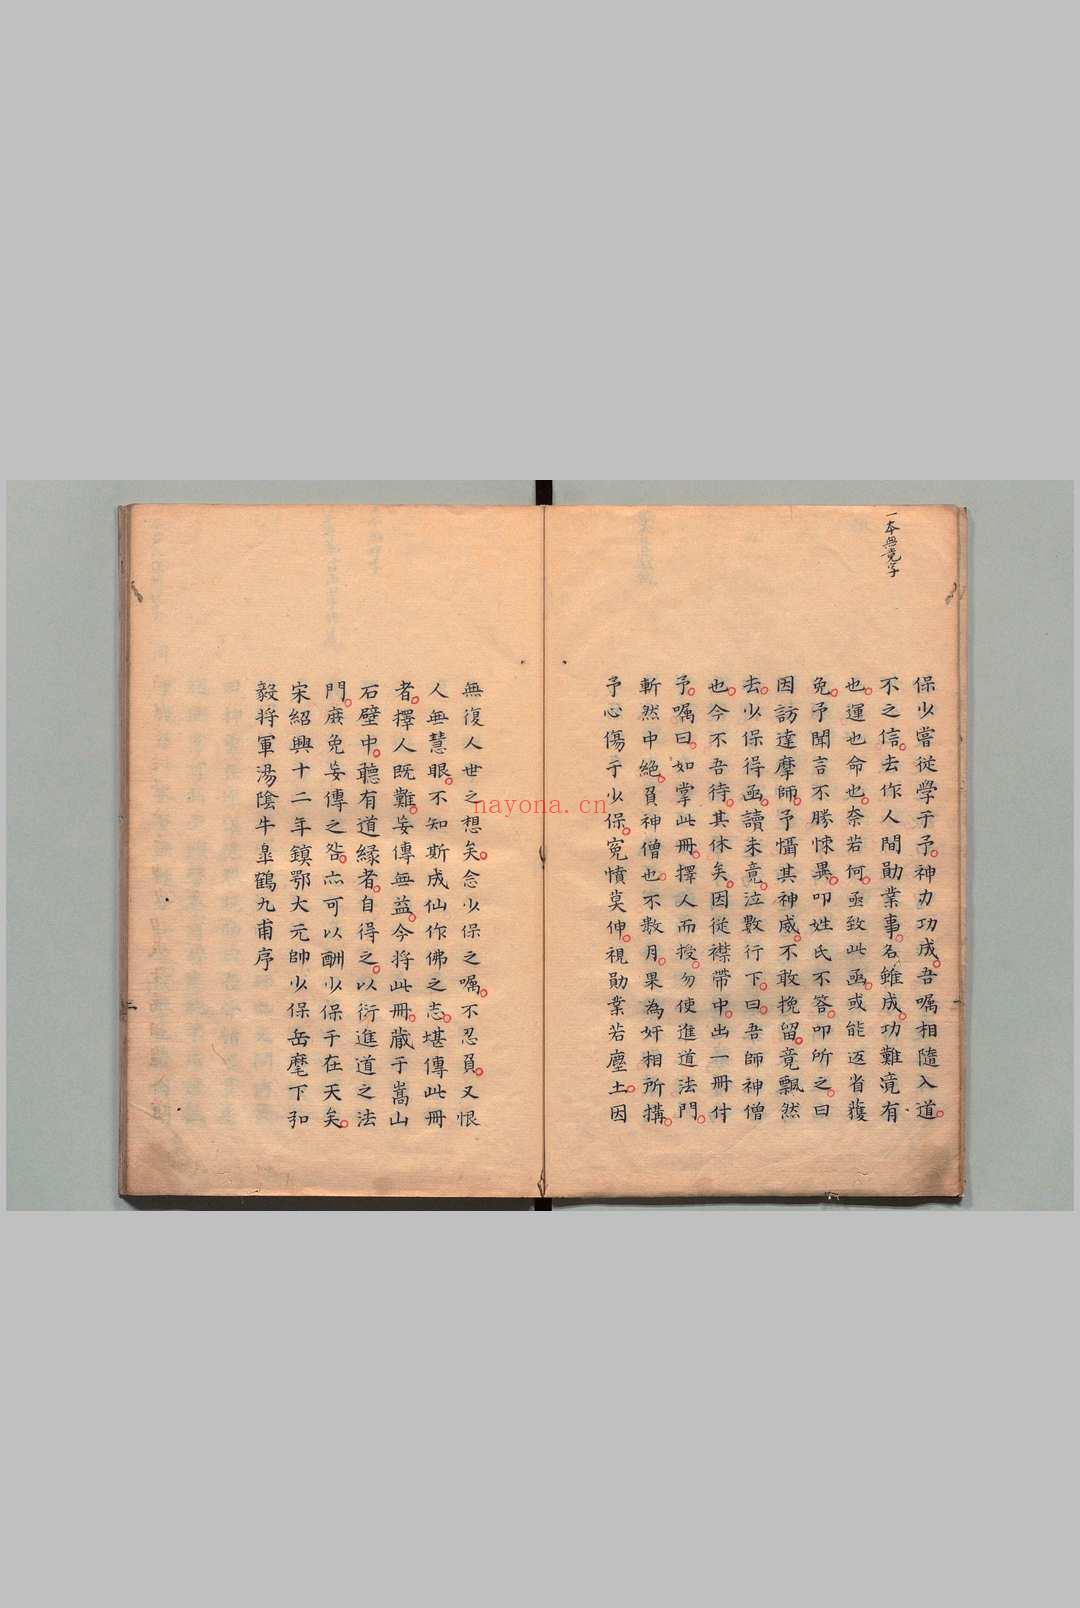 一本無竟字
保少嘗從學于予。神力功成。吾囑相隨入道。
不之信。去作人間勛業事。名雖成。功難竟。有
也。運也命也。奈若何。亟致此函。或能返省獲
免。予聞言不勝悚異。叩姓氏不答。叩所之。曰
因訪達摩師。予懾其神威。不敢挽留。竟飄然
去。少保得函。讀未竟。泣數行下。曰。吾師神僧
也。今不吾待。其休矣。因從襟帶中。出一冊付
予。囑曰。如掌此冊。擇人而授。勿使進道法門。
斬然中絕。負神僧也。不數月。果為奸相所搆。
予心傷于少保。冤憤莫伸。視勛業若塵土。因
無復人世之想矣。念少保之囑。不忍負。又恨
人無慧眼。不知斯成仙作佛之志。堪傳此冊
者。擇人既難。妄傳無益。今將此冊。藏于嵩山
石壁中。聽有道緣者。自得之。以衍進道之法
門。庶免妄傳之咎。亦可以酬少保于在天矣。
宋紹興十二年鎮鄂大元帥少保岳麾下弘
毅將軍湯陰牛皐鶴九甫序
nayona.cn